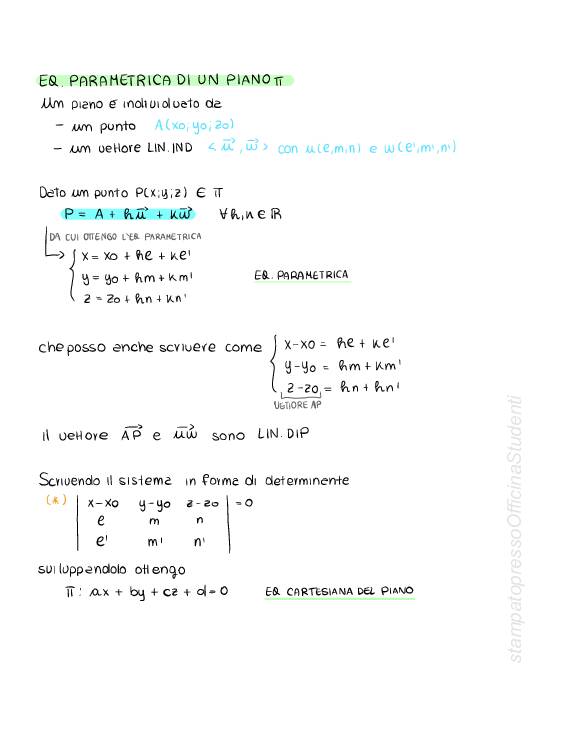 EQ. PARAMETRICA DI UN PIANO π
Un piano è individuato da
– un punto A(x0; y0; z0)
– un vettore LIN. IND <u⃗, w⃗> con u(e,m,n) e w(e',m',n')
Dato un punto P(x;y;z) ∈ π
P = A + hu⃗ + kw⃗ ∀h,n∈ℝ
DA CUI OTTENGO L'EQ. PARAMETRICA
x = x0 + he + ke'
y = y0 + hm + km'
z = z0 + hn + kn'
EQ. PARAMETRICA
che posso anche scrivere come
x-x0 = he + ke'
y-y0 = hm + km'
z-z0 = hn + hn'
VETTORE AP
il vettore AP e uw sono LIN. DIP
Scrivendo il sistema in forma di determinente
(*) | x-x0 y-y0 z-z0 | = 0
e m n
e' m' n'
sviluppandolo ottengo
π: ax + by + cz + d = 0 EQ CARTESIANA DEL PIANO
stampatopressoOfficinaStudenti